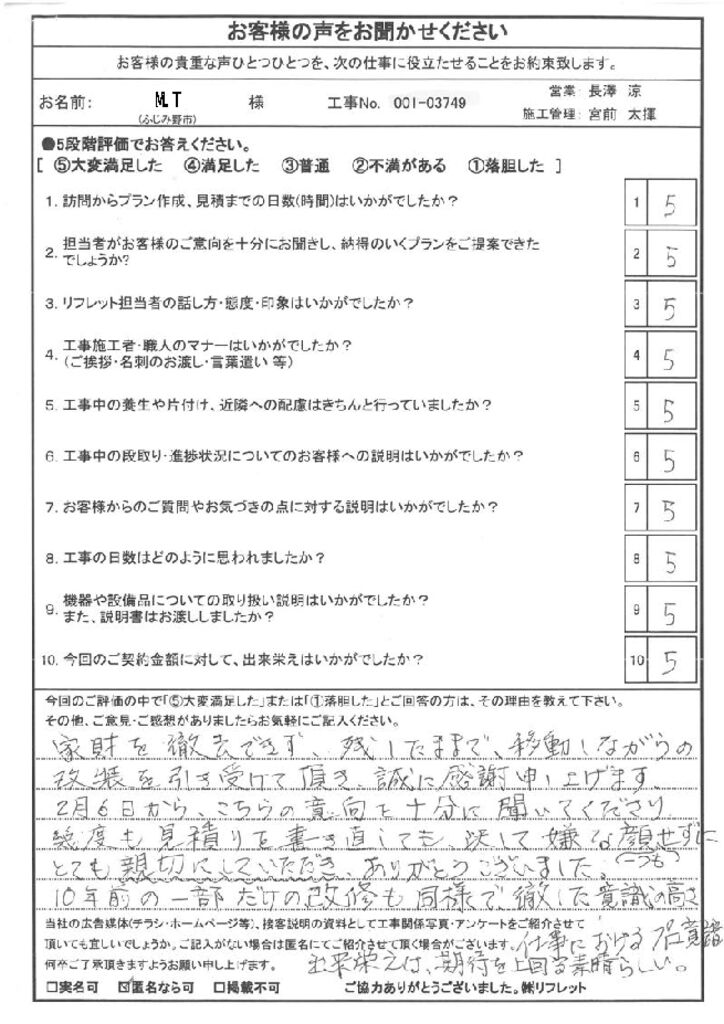 お客様の声をお聞かせください
お客様の貴重な声ひとつひとつを、次の仕事に役立たせることをお約束致します。
お名前: M.T 様 工事No. 001-03749 営業: 長澤 涼
(ふじみ野市) 施工管理: 宮前 太揮
●5段階評価でお答えください。
[ ⑤大変満足した ④満足した ③普通 ②不満がある ①落胆した ]
1. 訪問からプラン作成、見積までの日数(時間)はいかがでしたか? 1 5
2. 担当者がお客様のご意向を十分にお聞きし、納得のいくプランをご提案できた
でしょうか? 2 5
3. リフレット担当者の話し方・態度・印象はいかがでしたか? 3 5
4. 工事施工者・職人のマナーはいかがでしたか?
(ご挨拶・名刺のお渡し・言葉遣い 等) 4 5
5. 工事中の養生や片付け、近隣への配慮はきちんと行っていましたか? 5 5
6. 工事中の段取り・進捗状況についてのお客様への説明はいかがでしたか? 6 5
7. お客様からのご質問やお気づきの点に対する説明はいかがでしたか? 7 5
8. 工事の日数はどのように思われましたか? 8 5
9. 機器や設備品についての取り扱い説明はいかがでしたか?
また、説明書はお渡ししましたか? 9 5
10. 今回のご契約金額に対して、出来栄えはいかがでしたか? 10 5
今回のご評価の中で「⑤大変満足した」または「①落胆した」とご回答の方は、その理由を教えて下さい。
その他、ご意見・ご感想がありましたらお気軽にご記入ください。
家財を撤去できず、残したままで、移動しながらの
改装を引き受けて頂き、誠に感謝申し上げます。
2月6日から、こちらの意向を十分に聞いてくださり
幾度も見積りを書き直しても、決して嫌な顔せずに
とても親切にしていただき ありがとうございました。(つも)
10年前の一部だけの改修も同様で、徹した意識の高さ
当社の広告媒体(チラシ・ホームページ等)、接客説明の資料として工事関係写真・アンケートをご紹介させて
頂いても宜しいでしょうか。ご記入がない場合は匿名にてご紹介させて頂く場合がございます。仕事における
何卒ご了承頂きますようお願い申し上げます。 出来栄えは、期待を上回る素晴らしい。
□実名可 ☑匿名なら可 □掲載不可 ご協力ありがとうございました。㈱リフレット